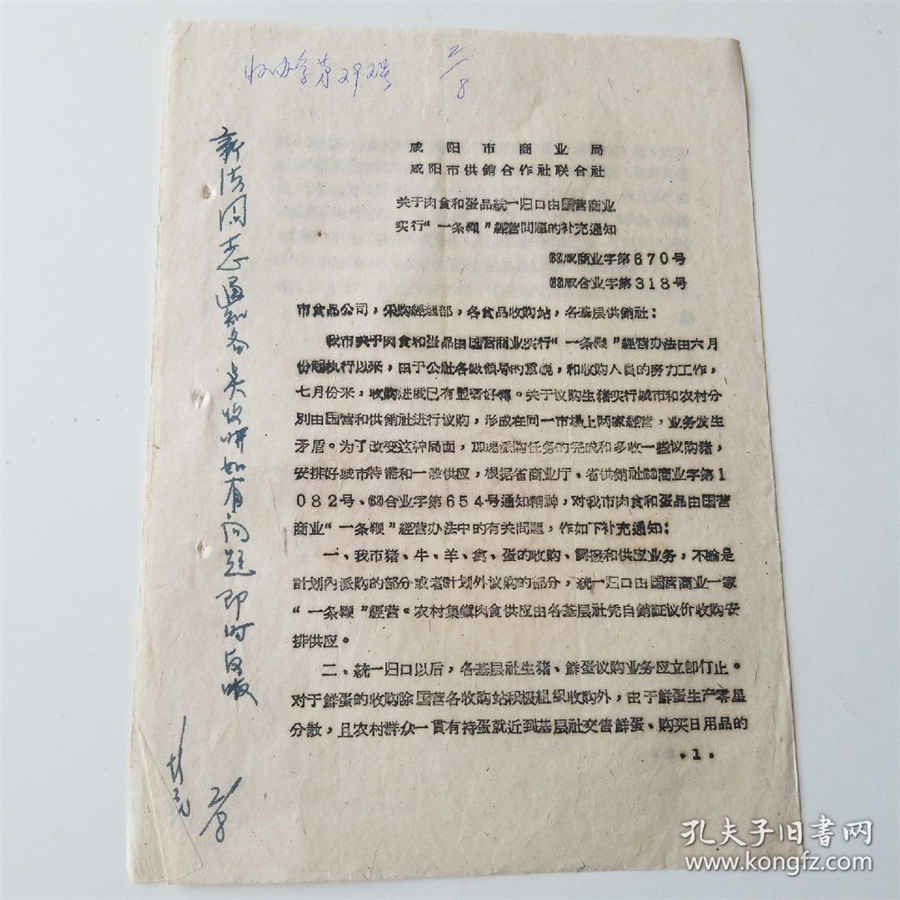 2/8
咸阳市商业局
咸阳市供銷合作社联合社
关于肉食和蛋品統一归口由国营商业
实行“一条鞭”經营問題的补充通知
商业字第670号
合业字第318号
市食品公司，采购經理部，各食品收购站，各基层供銷社：
我市关于肉食和蛋品由国营商业实行“一条鞭”經营办法由六月
份起执行以来，由于公社各級領导的重視，和收购人員的努力工作，
七月份来，收购进度已有显著好轉。关于议购生猪实行城市和农村分
別由国营和供銷社进行议购，形成在同一市場上两家經营，业务发生
矛盾。为了改变这种局面，加速派购任务的完成和多收一些议购猪，
安排好城市特需和一般供应，根据省商业厅、省供銷社商业字第1
082号、合业字第654号通知精神，对我市肉食和蛋品由国营
商业“一条鞭”經营办法中的有关問題，作如下补充通知：
一、我市猪、牛、羊、禽、蛋的收购、調撥和供应业务，不論是
計划內派购的部分或者計划外议购的部分，統一归口由国营商业一家
“一条鞭”經营。农村集鎮肉食供应由各基层社凭自銷証议价收购安
排供应。
二、統一归口以后，各基层社生猪、鮮蛋议购业务应立即停止。
对于鮮蛋的收购除国营各收购站积极組织收购外，由于鮮蛋生产零星
分散，且农村群众一貫有持蛋就近到基层社交售鮮蛋、购买日用品的
·1·
同志通知各
如有问题即时反映
孔夫子旧书网
www.kongfz.com